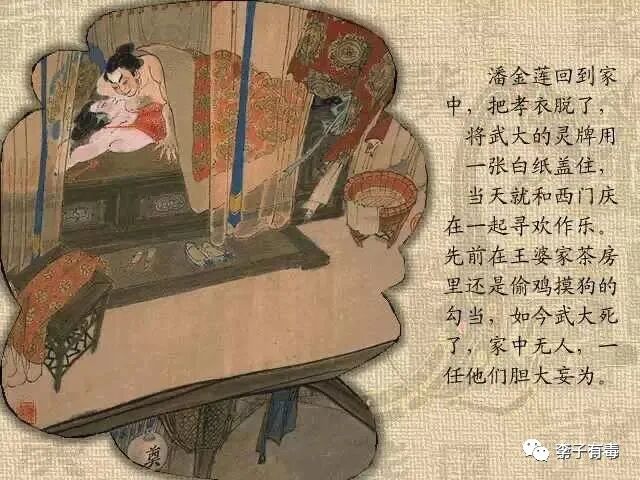 潘金莲回到家
中，把孝衣脱了，
将武大的灵牌用
一张白纸盖住，
当天就和西门庆
在一起寻欢作乐。
先前在王婆家茶房
里还是偷鸡摸狗的
勾当，如今武大死
了，家中无人，一
任他们胆大妄为。
奠
李子有毒